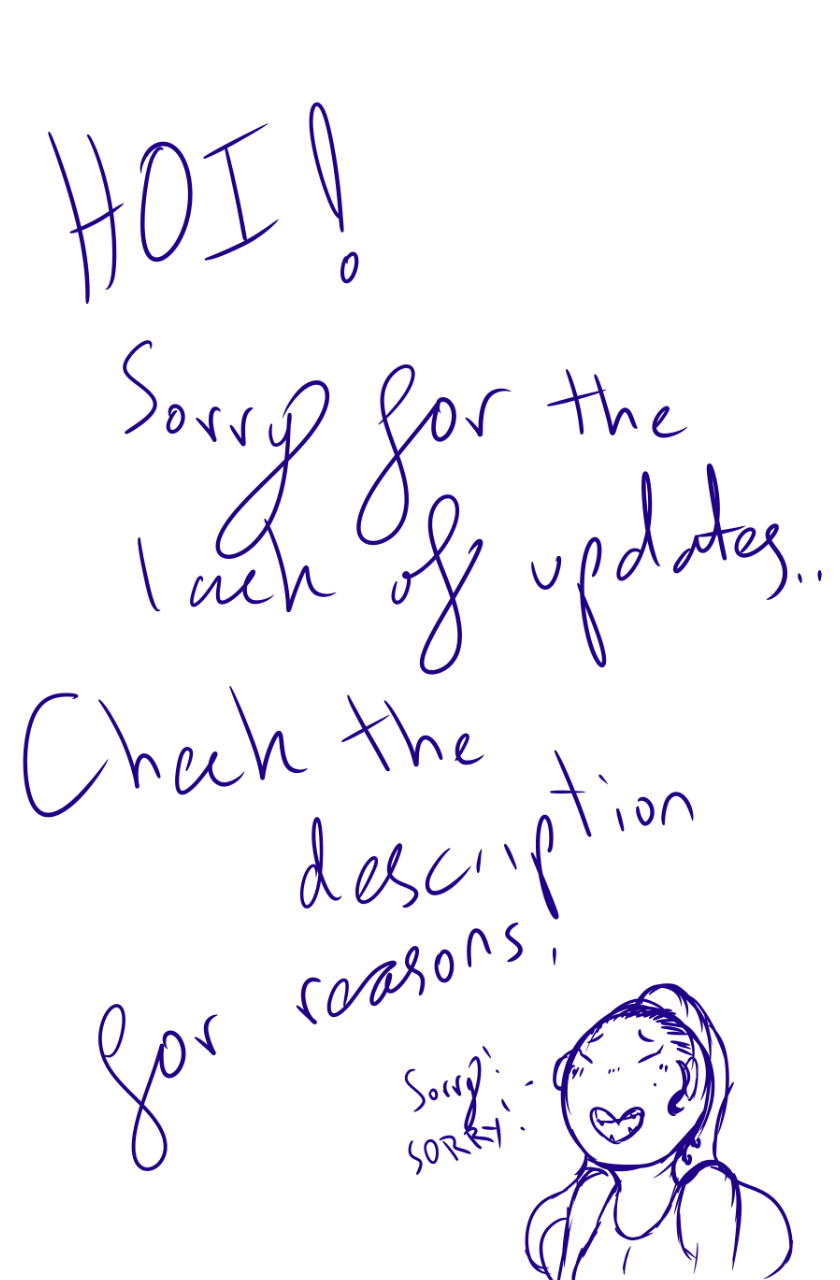 HOI!
Sorry for the
lack of updates..
Check the
description
for reasons!
Sorry!
SORRY!